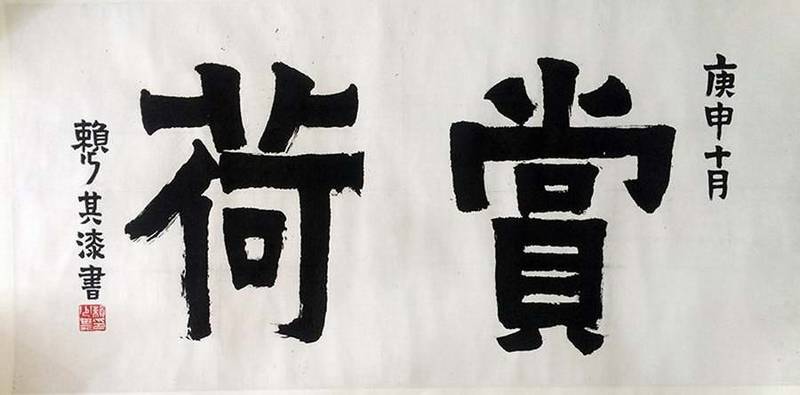 庚申十月
賞荷
賴少其漆書